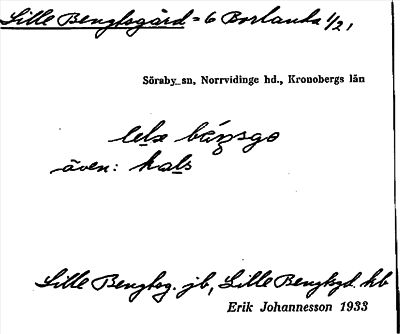 Lille Bengtsgård = 6 Borlanda 1/2,
Söraby sn, Norrvidinge hd., Kronobergs län
även: hals
Lille Bengtsg. jb, Lille Bengtsgd. kb
Erik Johannesson 1933